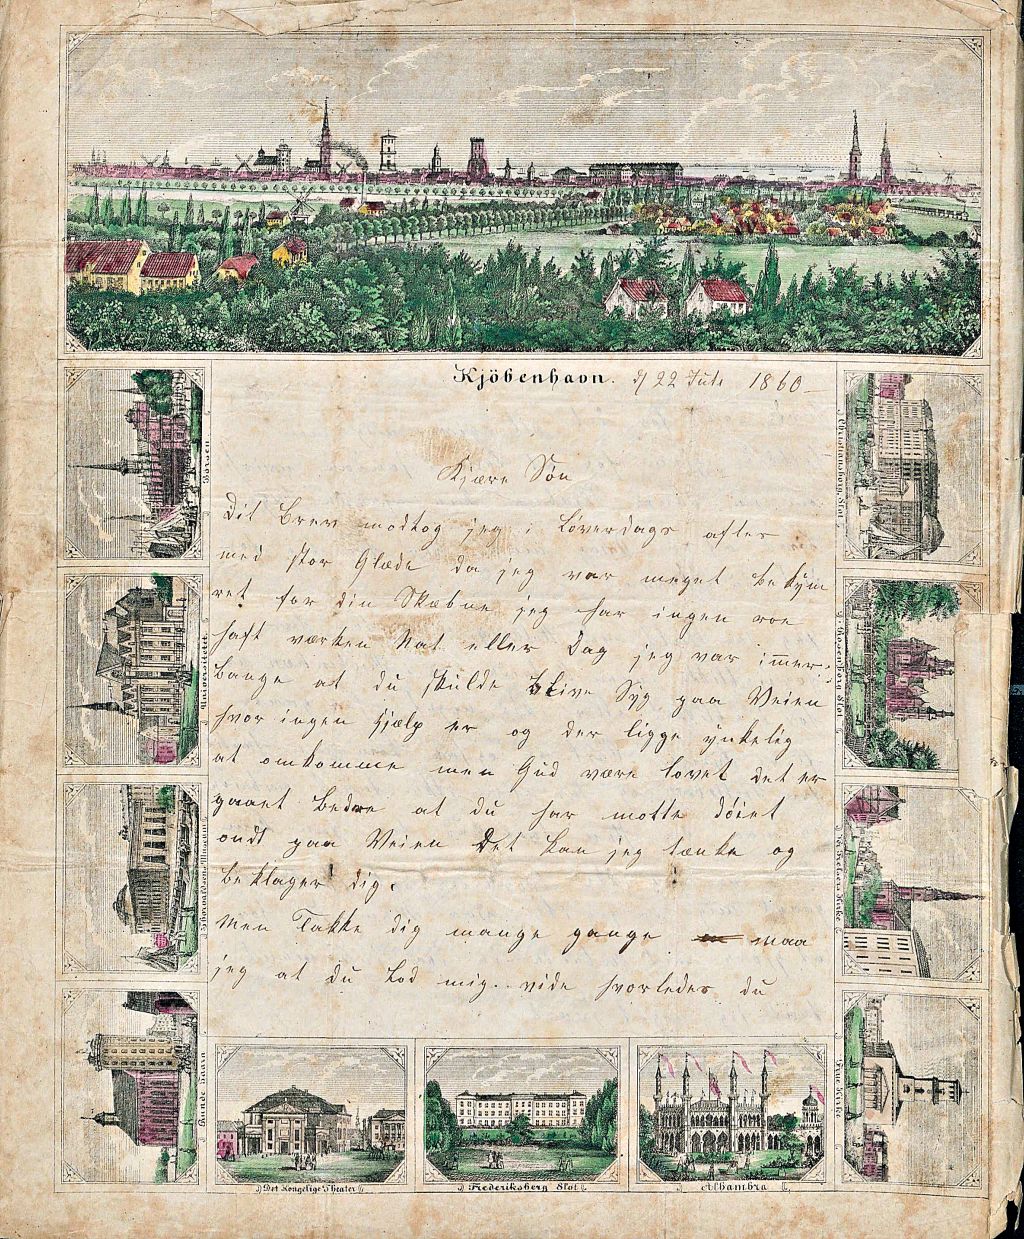 Kjöbenhavn. d 22 Juli 1860
Kjære Søn
Dit Brev modtog jeg i Løverdags aftes
med stor Glæde da jeg var meget bekÿm
ret for din Skæbne jeg har ingen roe
haft værken Nat eller Dag jeg var immer
bange at du skulde blive Syg paa Veien
hvor ingen Hjælp er og der ligge ynkelig
at omkomme men Gud være lovet det er
gaaet bedre at du har motte døiet
ondt paa Veien Det kan jeg tænke og
beklager dig.
Men Takke dig mange gange maa
jeg at du lod mig vide hvorledes du
Börsen
Universitetet
Thorvaldsens Museum
Runde Taarn
Det Kongelige Theater
Frederiksberg Slot
Alhambra
Christiansborg Slot
Rosenborg Slot
Vor Frelsers Kirke
Frue Kirke